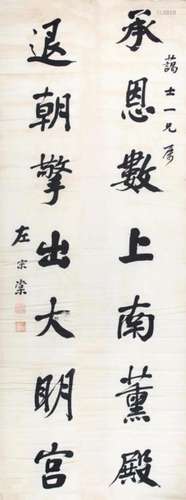 藹士一兄屬
承恩數上南薰殿
退朝擎出大明宮
左宗棠